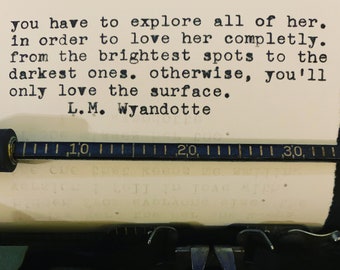 you have to explore all of her.
in order to love her completly.
from the brightest spots to the
darkest ones. otherwise, you'll
only love the surface.
L.M. Wyandotte
10 20 30